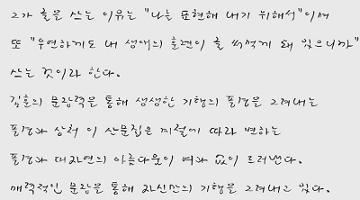 그가 글을 쓰는 이유는 "나를 표현해 내기 위해서"이며
또 "우연하게도 내 생애의 훈련이 글 써먹게 돼 있으니까"
쓰는 것이라 한다.
김훈의 문장력을 통해 생생한 기행의 풍경을 그려내는
풍경과 상처 이 산문집은 계절에 따라 변하는
풍경과 대자연의 아름다움이 여과 없이 드러난다.
매력적인 문장을 통해 자신만의 기행을 그려내고 있다.